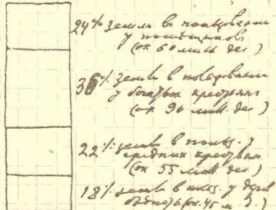 24% земли в пользовании
у помещиков
(ок 60 милл. дес)
36% земли в пользовании
у богатых крестьян
(ок 96 милл. дес.)
22% земли в польз. у
средних крестьян
(ок 55 милл дес)
18% земли в польз. у
(ок. 45 м. д.)